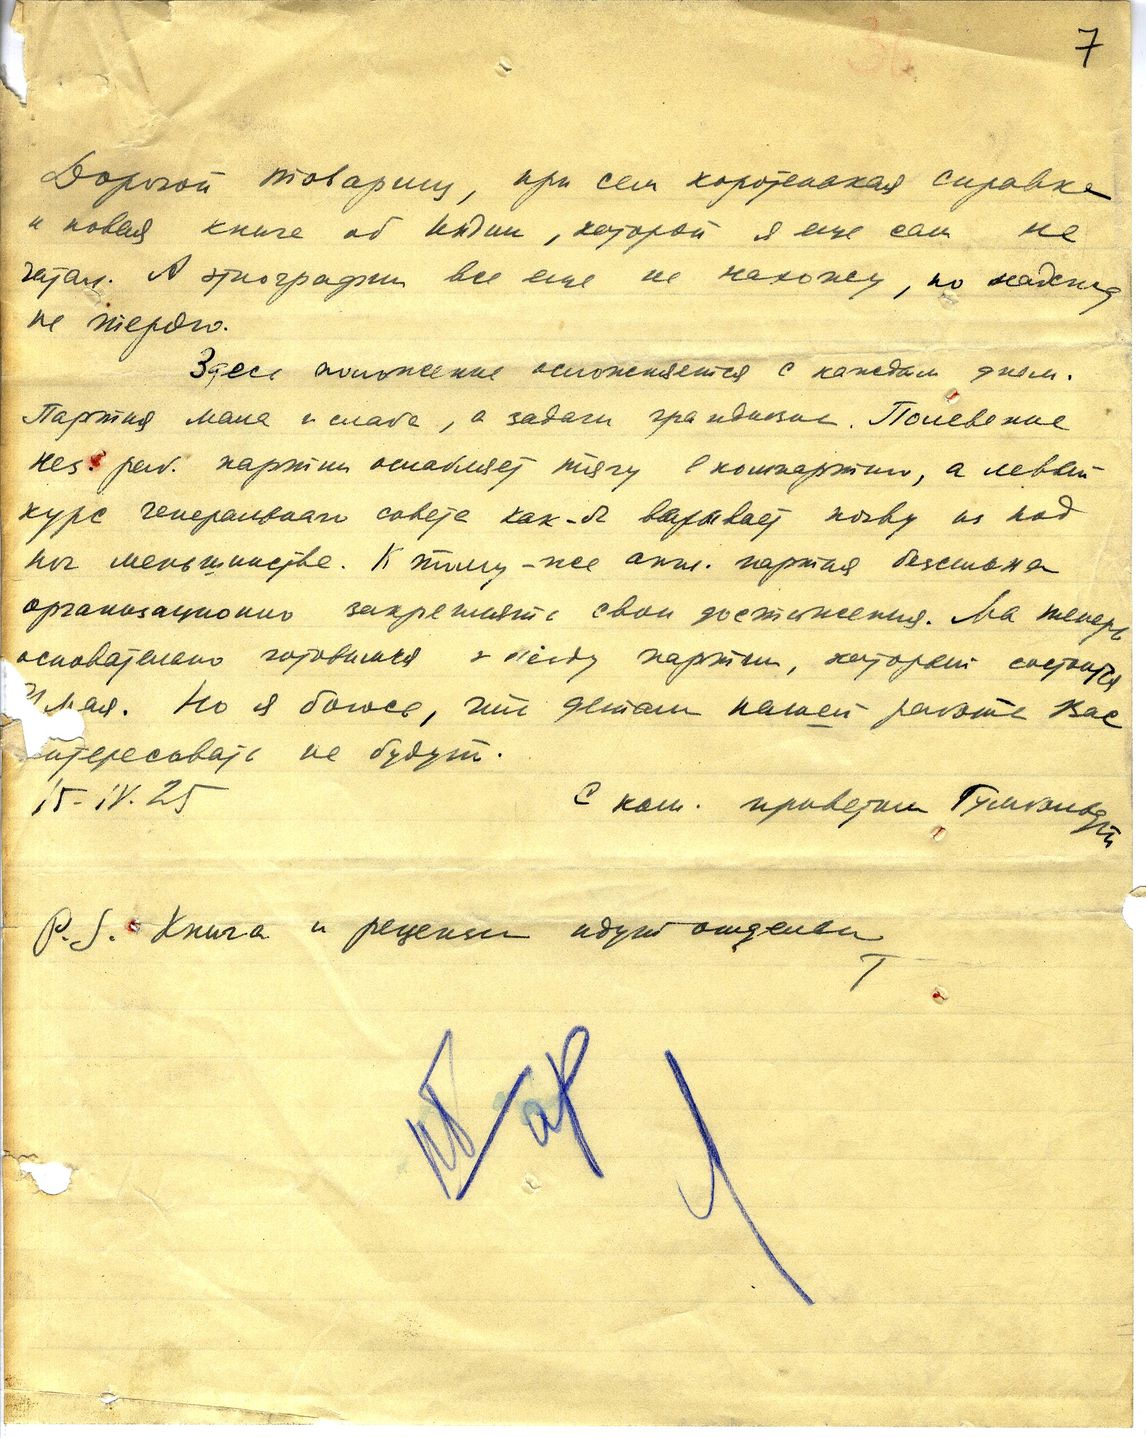 7
Дорогой товарищ, при сем коротенькая справка
и новая книга об Индии, которой я еще сам не
читал. А этнографии все еще не нахожу, но надежд
не теряю.
Здесь положение осложняется с каждым днем.
Партия мала и слаба, а задачи грандиозны. Полевение
нез. раб. партии ослабляет тягу в компартию, а левый
курс генерального совета как-бы вырывает почву из под
ног меньшинства. К тому-же англ. партия
организационно закреплять свои достижения. Мы теперь
основательно готовимся к с'езду партии, который состоится
мая. Но я боюсь, что детали нашей работы Вас
интересовать не будут.
15-IV. 25 С ком. приветом
P.S. Книга и рецензии идут отдельно
Т